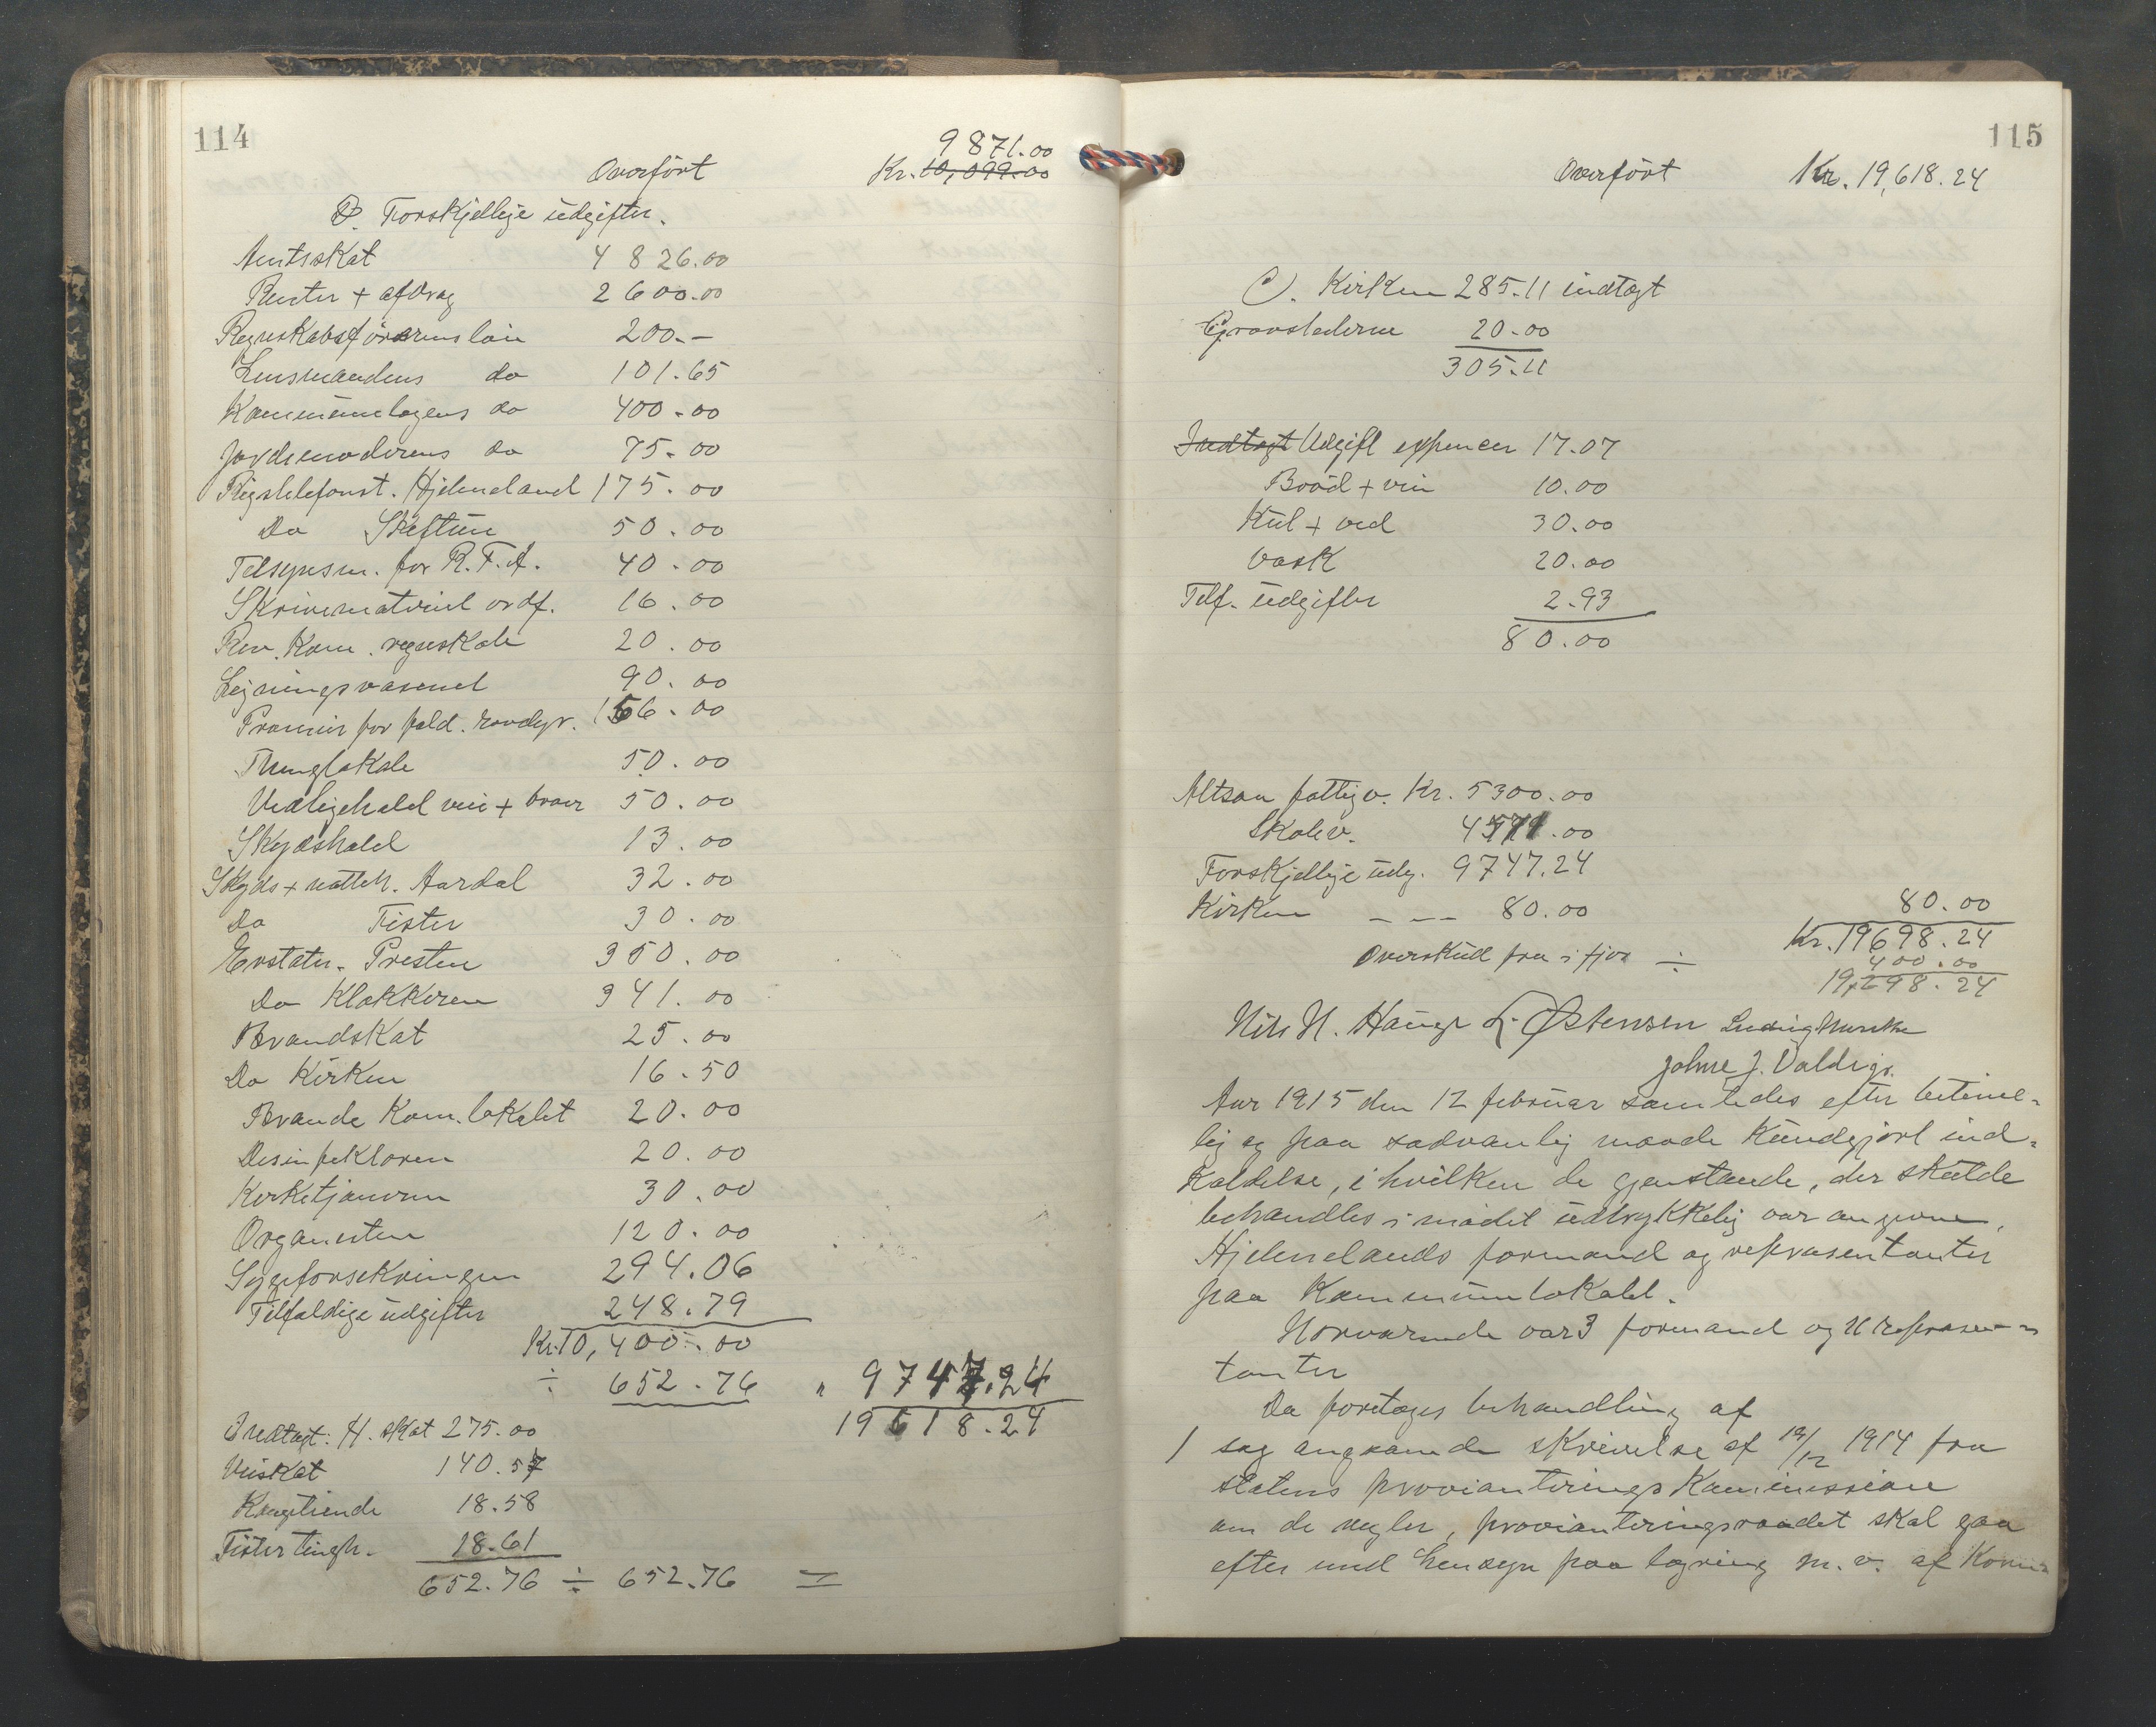 114
9871.00
Overført Kr. 10,099.00
B. Forskjellige udgifter.
Amtsskat 4 826.00
Renter + afdrag 2600.00
Regnskabsførerens løn 200.-
Lensmandens do 101.65
Kommunelægens do 400.00
Jordemoderens do 75.00
Rigstelefonst. Hjelmeland 175.00
Do Skiftun 50.00
Tilsynsm. for R.F.A. 40.00
Skrivematriel ordf. 16.00
Rev. Kom. regnskab 20.00
Ligningsvæsenet 90.00
Præmier for fæld. rovdyr. 156.00
Thinglokale 50.00
Vedligehold veie + broer 50.00
Skydshold 13.00
Skyds + natteh. Aardal 32.00
Do Fister 30.00
Erstatn. Presten 350.00
Do Klokkeren 341.00
Brandskat 25.00
Do Kirken 16.50
Brande Kom. lokalet 20.00
Desinfektøren 20.00
Kirketjeneren 30.00
Organisten 120.00
Sygeforsekringen 294.06
Tilfældige udgifter 248.79
Kr. 10,400.00
÷ 652.76 " 9747.24
19618.24
Indtægt: H. skat 275.00
Veiskat 140.57
Kongetiende 18.58
Fister tingh. 18.61
652.76 ÷ 652.76 =
115
Overført Kr. 19,618.24
C). Kirken 285.11 indtægt
Gravstederne 20.00
305.11
Indtægt Udgift expencer 17.07
Brød + vin 10.00
Kul + ved 30.00
Vask 20.00
Telf. udgifter 2.93
80.00
Altsaa fattigv. Kr. 5300.00
Skolev. 4571.00
Forskjellige udg. 9747.24
Kirken --- 80.00 80.00
Kr. 19698.24
Overskud fra i fjor ÷ 400.00
19,298.24
Nils N. Hauge L. Østensen Ludvig
Johne J. Valdrigs.
Aar 1915 den 12 februar samledes efter betime-
lig og paa sædvanlig maade kundgjort ind-
kaldelse, i hvilken de gjenstande, der skulde
behandles i mødet udtrykkelig var angivne,
Hjelmelands formænd og repræsentanter
paa Kommunelokalet.
Nærværende var 3 formænd og 11 repræsen-
tanter
Da foretoges behandling af
1 sag angaaende skrivelse af 19/12 1914 fra
statens provianteringskommission
om de regler, provianteringsraadet skal gaa
efter med hensyn paa lagring m.v. af korn-